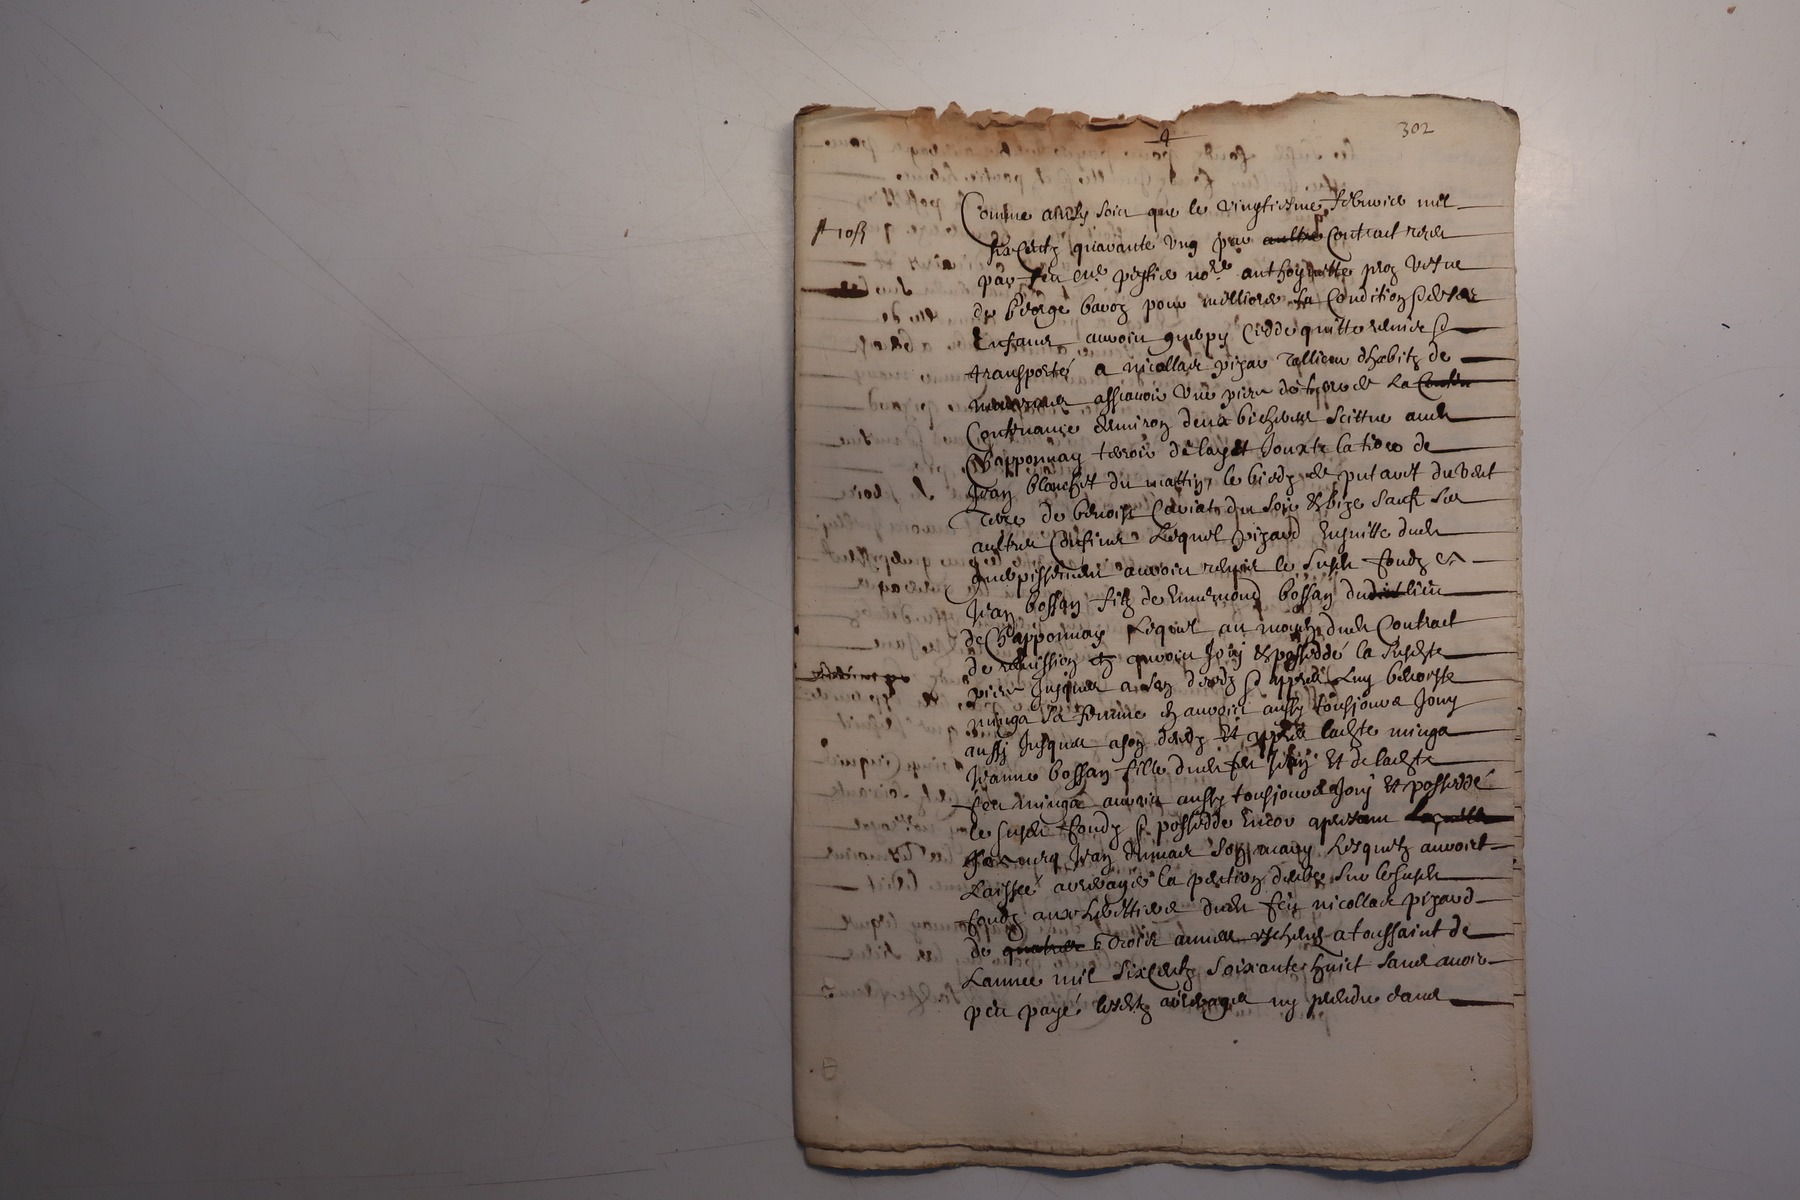 302
Comme ainsy soict que le vingtiesme febvrier mil
six centz quarante ung par aultre Contract receu
par feu me pessier nore anthoynette proz vefve
de George bavoz pour melliorer sa Condition et de ses
Enfans auroict guerpy Cedde quitte remis et
transporté a nicollas pizar tallieur dhabitz de
assavoir une piece de terre de La
Contenance denviron deux bicherees scittue audt
Chapponnay terroir de layet Jouxte la terre de
Jean blanchet du mattin, le bied de putavet du vent
terre de benoist Caviat du soir et bize sauf ses
aultres Confins Lequel pizard Ensuitte dudt
guerpissement auroict remis le susdt fondz a
Jean bossan filz de Enimond bossan dudict lieu
de Chapponnay Lequel au moyen dudt Contract
de remission auroict Jouy et possedde la susdte
piece Jusques a son decedz et appres Luy benoiste
minga sa femme en auroict aussy tousjours Jouy
aussy Jusques a son decedz Et appres ladte minga
Jeanne bossan fille dudt feu Jean Et de ladte
feu minga auroict aussy tousjours Jouy Et possedde
le susdt fondz et possedde Encor apresant
Jean dumas son mary Lesquelz auroict
Laissée arreragée la pention deube sur le susdt
fondz aux herittiers dudt feu nicollas pizard
de quatre trois annees escheus a toussaint de
Lannee mil six centz soixante huict sans avoir
peu payé lesdtz arrerages ny prendre dans